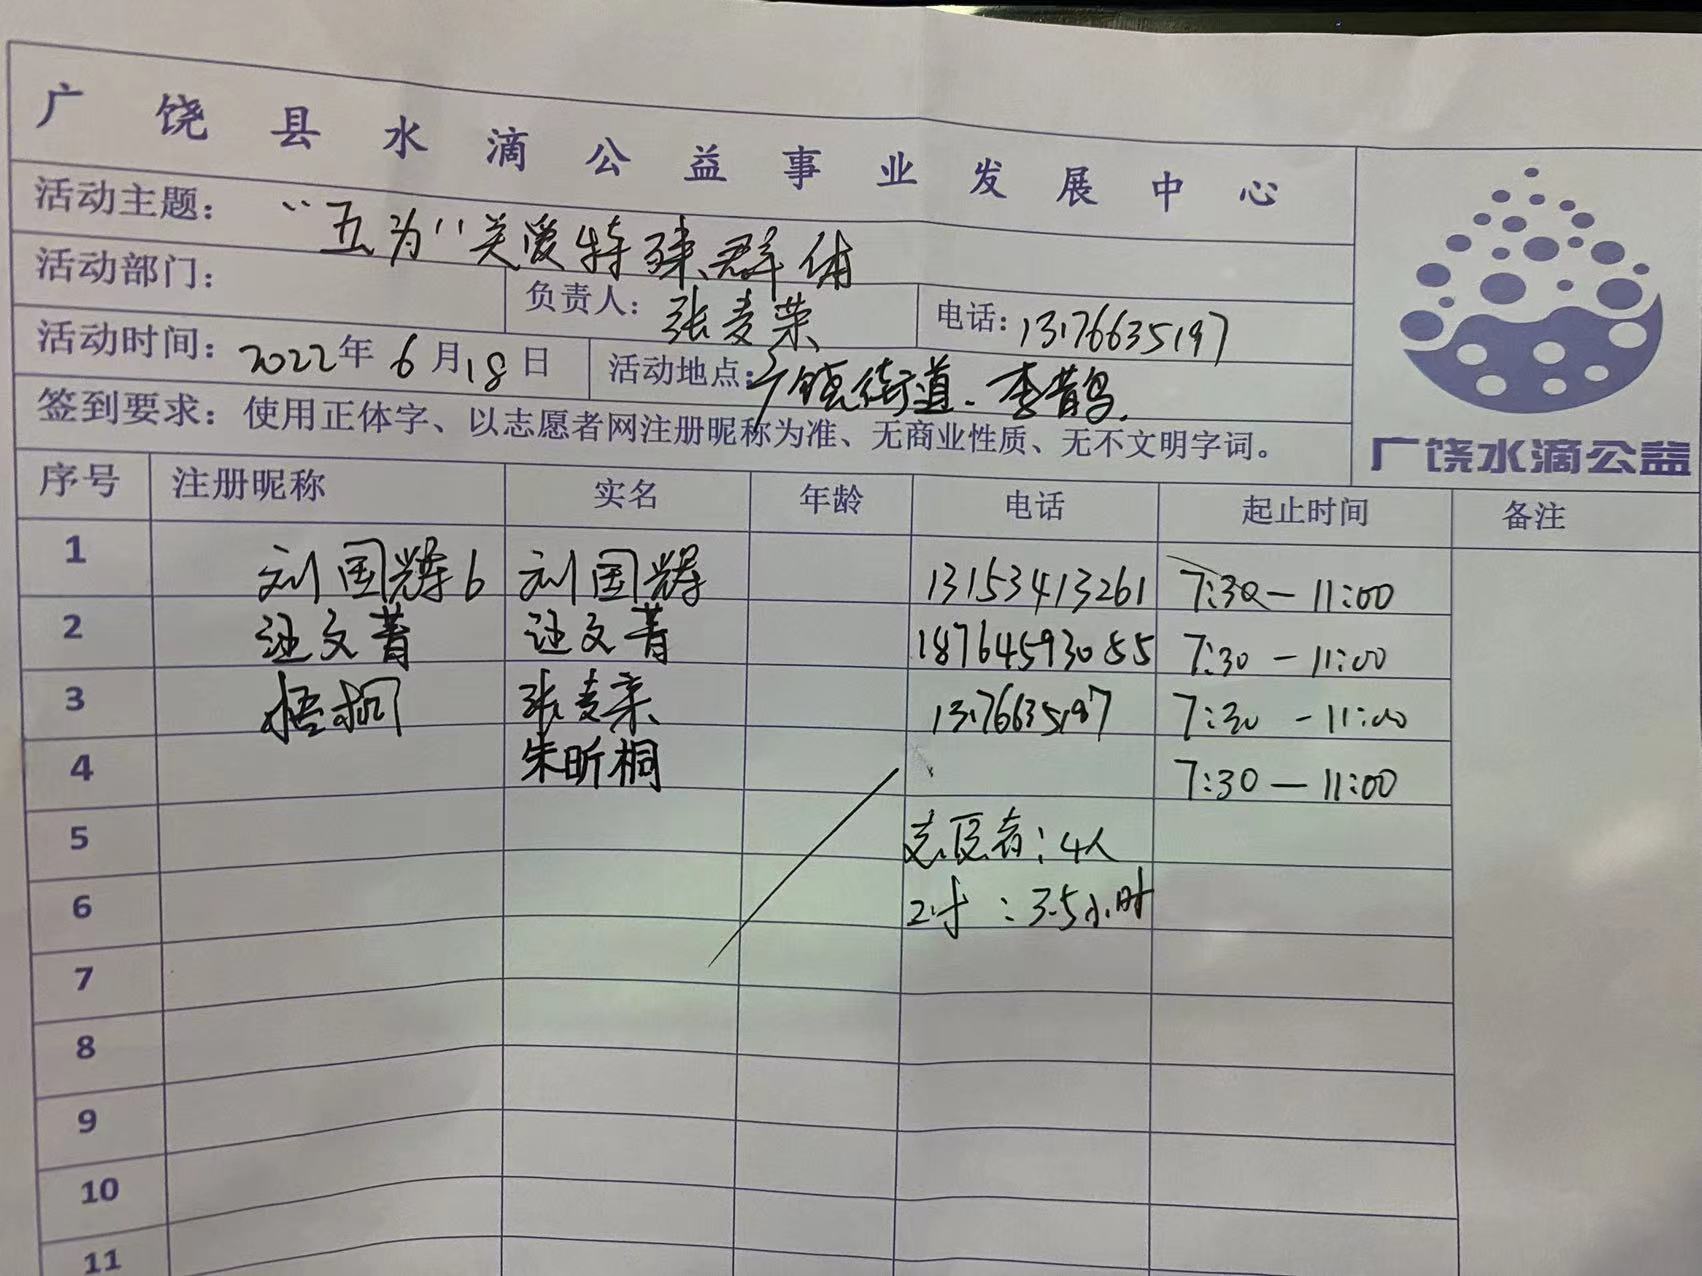 广饶县水滴公益事业发展中心
活动主题：“五为”关爱特殊群体
活动部门： 负责人：张麦荣 电话：13176635197
活动时间：2022年6月18日 活动地点：广饶街道、李鹊
签到要求：使用正体字、以志愿者网注册昵称为准、无商业性质、无不文明字词。
广饶水滴公益
序号 注册昵称 实名 年龄 电话 起止时间 备注
1 刘国辉6 刘国辉 13153413261 7:30-11:00
2 文菁 文菁 18764593055 7:30-11:00
3 梧桐 张麦荣 13176635197 7:30-11:00
4 朱昕桐 7:30-11:00
5 志愿者：4人
6 工时：3.5小时
7
8
9
10
11